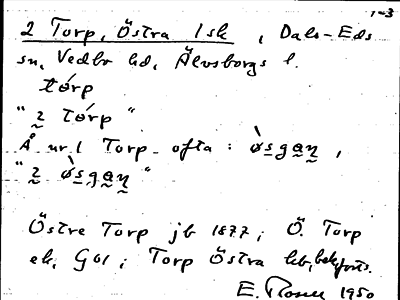 1-3
2 Torp, Östra 1 sk, Dals-Eds
sn, Vedbo hd, Älvsborgs l.
tórp
"2 tórp"
Å nr 1 Torp ofta: ø̀sgaɳ,
"2 ø̀sgaɳ"
Östre Torp jb 1877; Ö. Torp
ek. G01; Torp Östra hb,
E. Rosell 1950